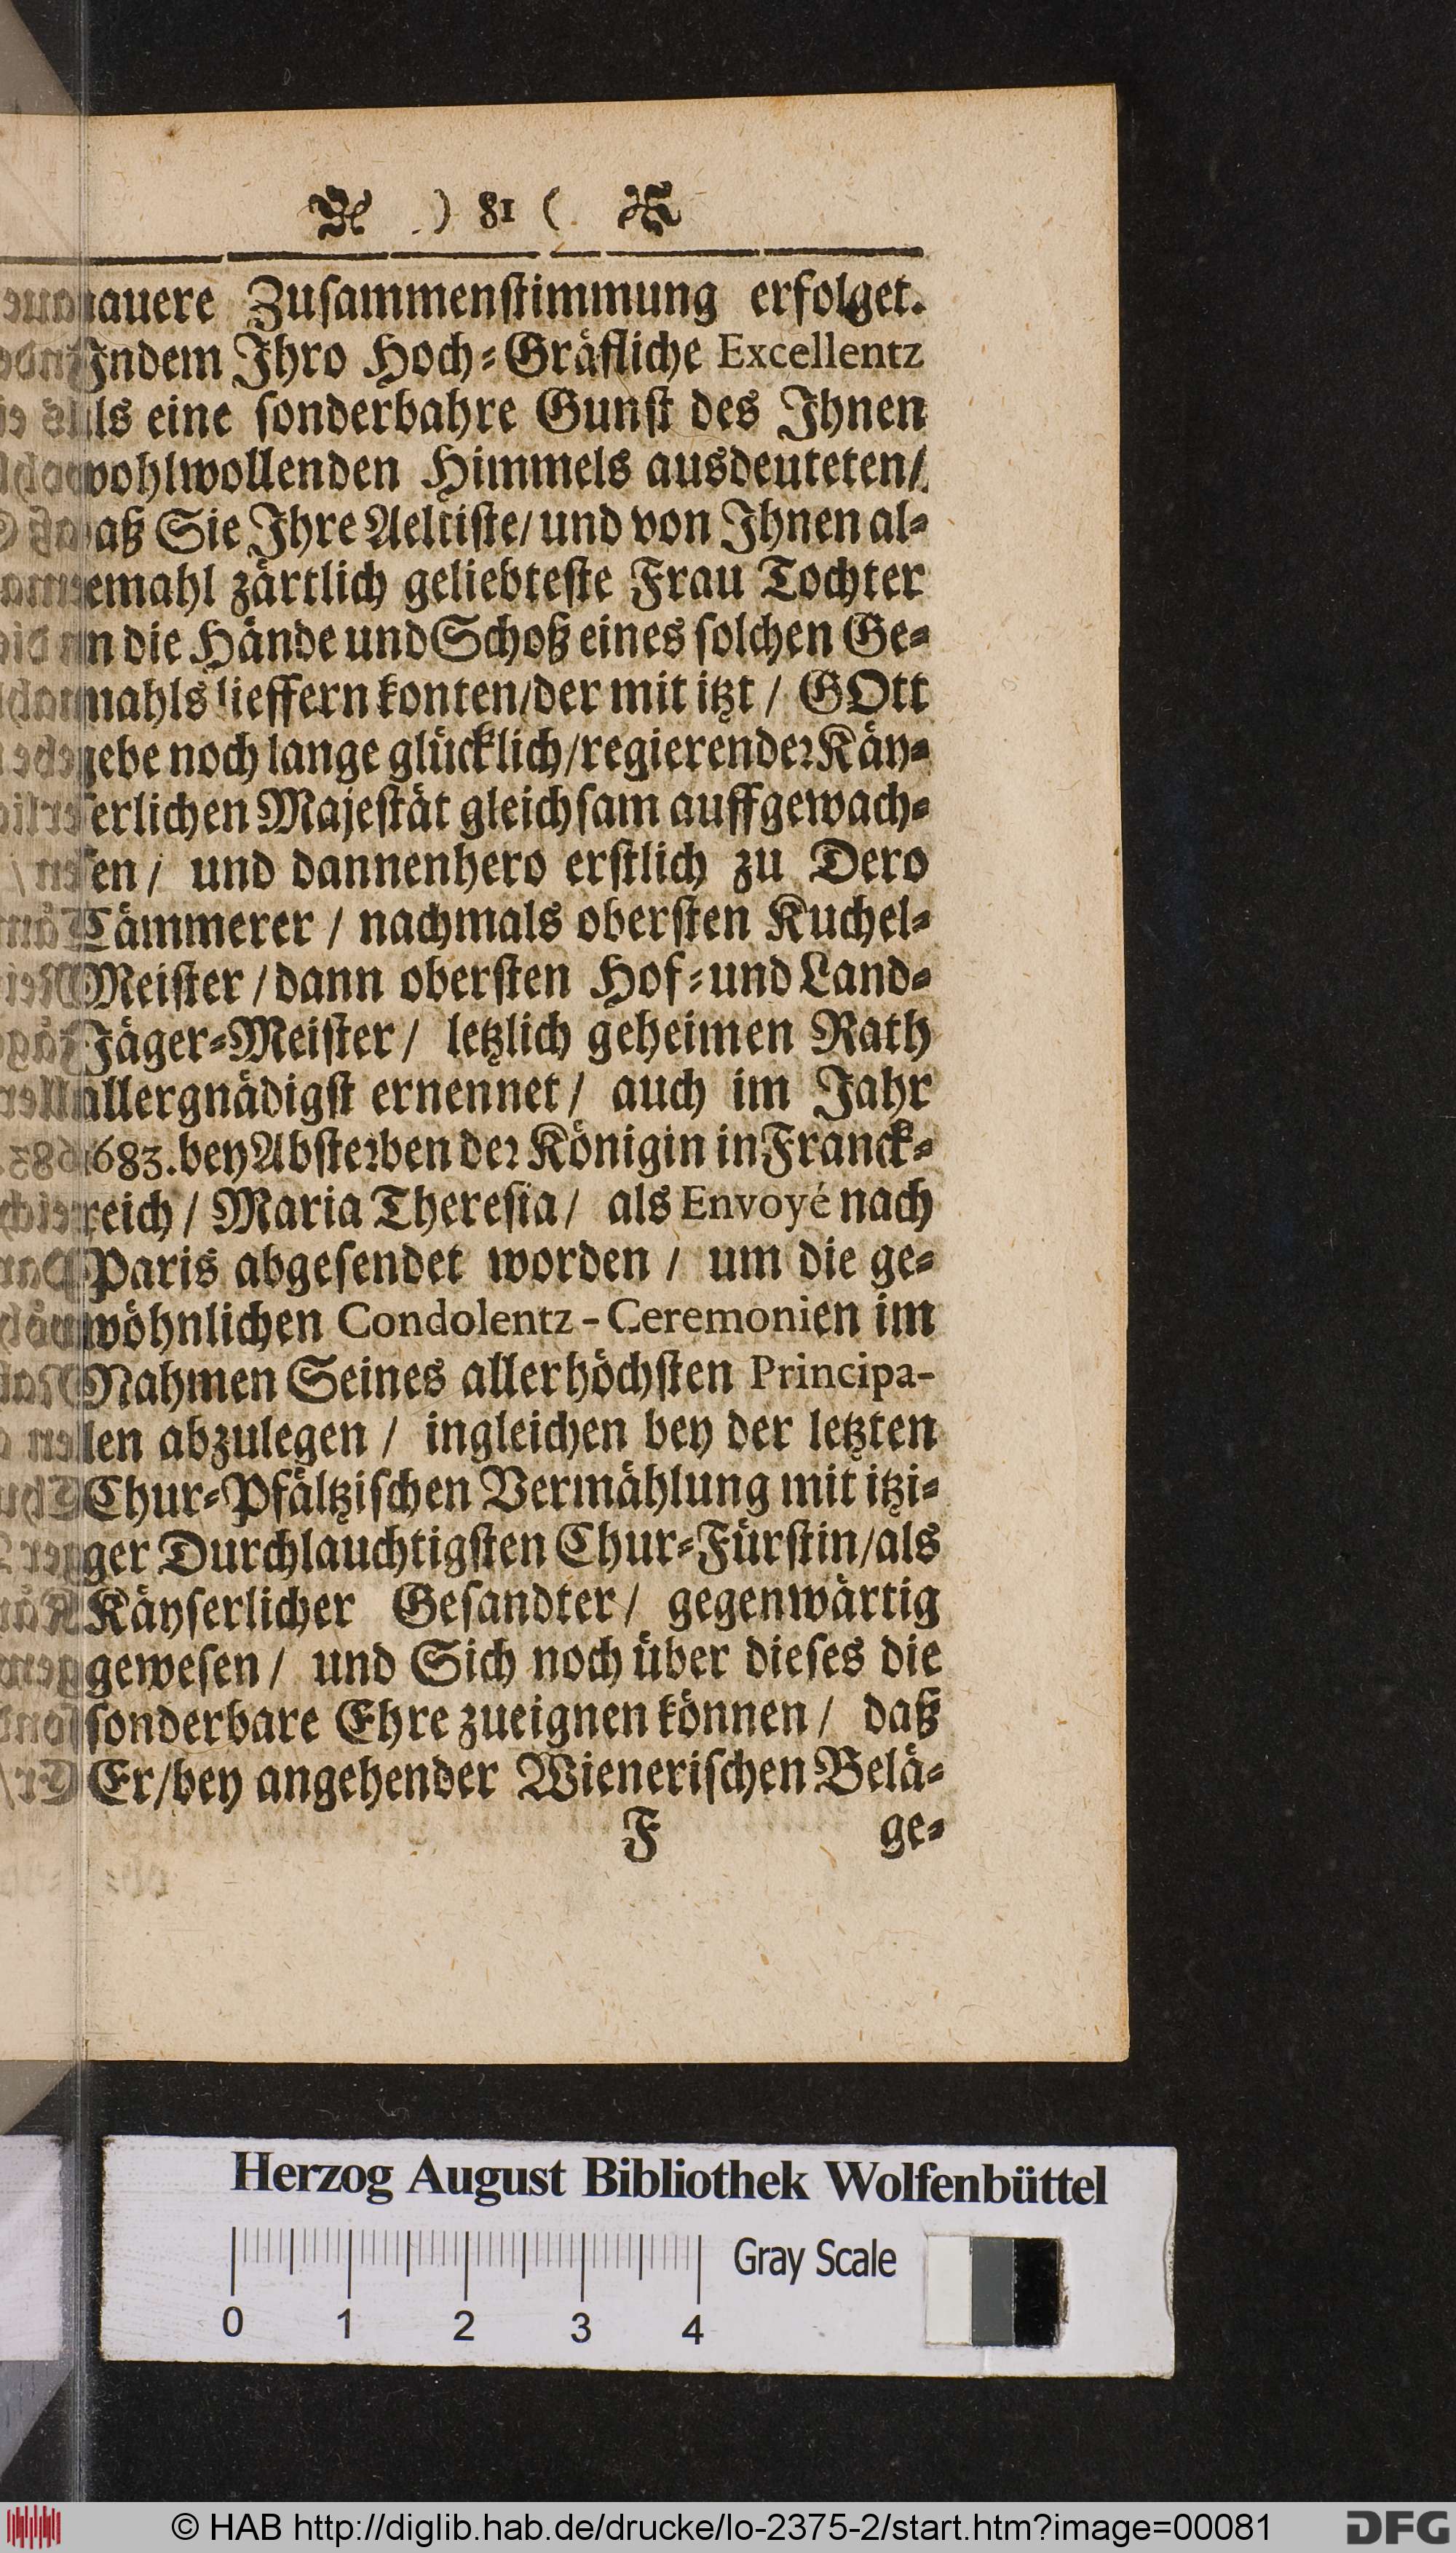 ) 81 (
nauere Zusammenstimmung erfolget.
Indem Ihro Hoch-Gräfliche Excellentz
als eine sonderbahre Gunst des Ihnen
wohlwollenden Himmels ausdeuteten/
daß Sie Ihre Aeltiste/ und von Ihnen al-
lemahl zärtlich geliebteste Frau Tochter
in die Hände und Schoß eines solchen Ge-
mahls lieffern konten/der mit itzt / GOtt
gebe noch lange glücklich/regierender Käy-
serlichen Majestät gleichsam auffgewach-
sen / und dannenhero erstlich zu Dero
Cämmerer / nachmals obersten Kuchel-
Meister / dann obersten Hof-und Land-
Jäger-Meister / letzlich geheimen Rath
allergnädigst ernennet / auch im Jahr
1683. bey Absterben der Königin in Franck-
reich / Maria Theresia / als Envoyé nach
Paris abgesendet worden / um die ge-
wöhnlichen Condolentz-Ceremonien im
Nahmen Seines allerhöchsten Principa-
len abzulegen / ingleichen bey der letzten
Chur-Pfältzischen Vermählung mit itzi-
ger Durchlauchtigsten Chur-Fürstin/als
Käyserlicher Gesandter / gegenwärtig
gewesen / und Sich noch über dieses die
sonderbare Ehre zueignen können / daß
Er/bey angehender Wienerischen Belä-
F ge-
Herzog August Bibliothek Wolfenbüttel
Gray Scale
0 1 2 3 4
© HAB http://diglib.hab.de/drucke/lo-2375-2/start.htm?image=00081
DFG